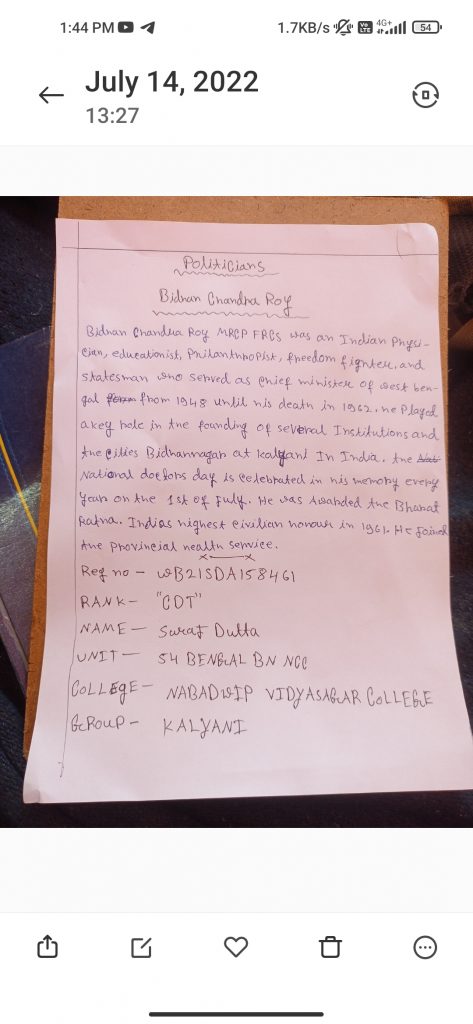 1:44 PM
1.7KB/s
4G+
54
July 14, 2022
13:27
Politicians
Bidhan Chandra Roy
Bidhan Chandra Roy MRCP FRCS was an Indian Physi-
cian, educationist, Philanthropist, freedom fighter, and
statesman who served as chief minister of west ben-
gal from 1948 until his death in 1962. he Played
a key role in the founding of several Institutions and
the cities Bidhannagar at kalyani In India. the
National doctors day is celebrated in his memory every
year on the 1st of July. He was Awarded the Bharat
Ratna. Indias highest civilian honour in 1961. He joined
the provincial health service.
Reg no - WB21SDA158461
RANK - "CDT"
NAME - Suraj Dutta
UNIT - 54 BENGAL BN NCC
COLLEGE - NABADWIP VIDYASAGAR COLLEGE
GROUP - KALYANI